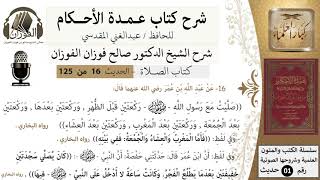 شرح كتاب عمدة الأحكام
للحافظ / عبدالغني المقدسي
شرح الشيخ الدكتور صالح فوزان الفوزان
كتاب الصلاة - الحديث 16 من 125
16- عَنْ عَبْدِ اللَّهِ بْنِ عُمَرَ رضي الله عنهما قَالَ:
(صَلَّيْتُ مَعَ رَسُولِ اللَّهِ - رَكْعَتَيْنِ قَبْلَ الظُّهْرِ، وَرَكْعَتَيْنِ بَعْدَهَا، وَرَكْعَتَيْنِ
بَعْدَ الْجُمُعَةِ، وَرَكْعَتَيْنِ بَعْدَ الْمَغْرِبِ، وَرَكْعَتَيْنِ بَعْدَ الْعِشَاءِ) رواه البخاري.
وَفِي لَفْظٍ: (فَأَمَّا الْمَغْرِبُ وَالْعِشَاءُ وَالْجُمُعَةُ: فَفِي بَيْتِهِ) رواه البخاري.
وَفِي لَفْظٍ: أَنَّ ابْنَ عُمَرَ قَالَ: حَدَّثَتْنِي حَفْصَةُ: أَنَّ النَّبِيَّ (كَانَ يُصَلِّي سَجْدَتَيْنِ
خَفِيفَتَيْنِ بَعْدَمَا يَطْلُعُ الْفَجْرُ، وَكَانَتْ سَاعَةً لَا أَدْخُلُ عَلَى النَّبِيِّ فِيهَا)
الفوزان
سلسلة الكتب والمتون
العلمية وشروحها الصوتية
رقم 01 حديث